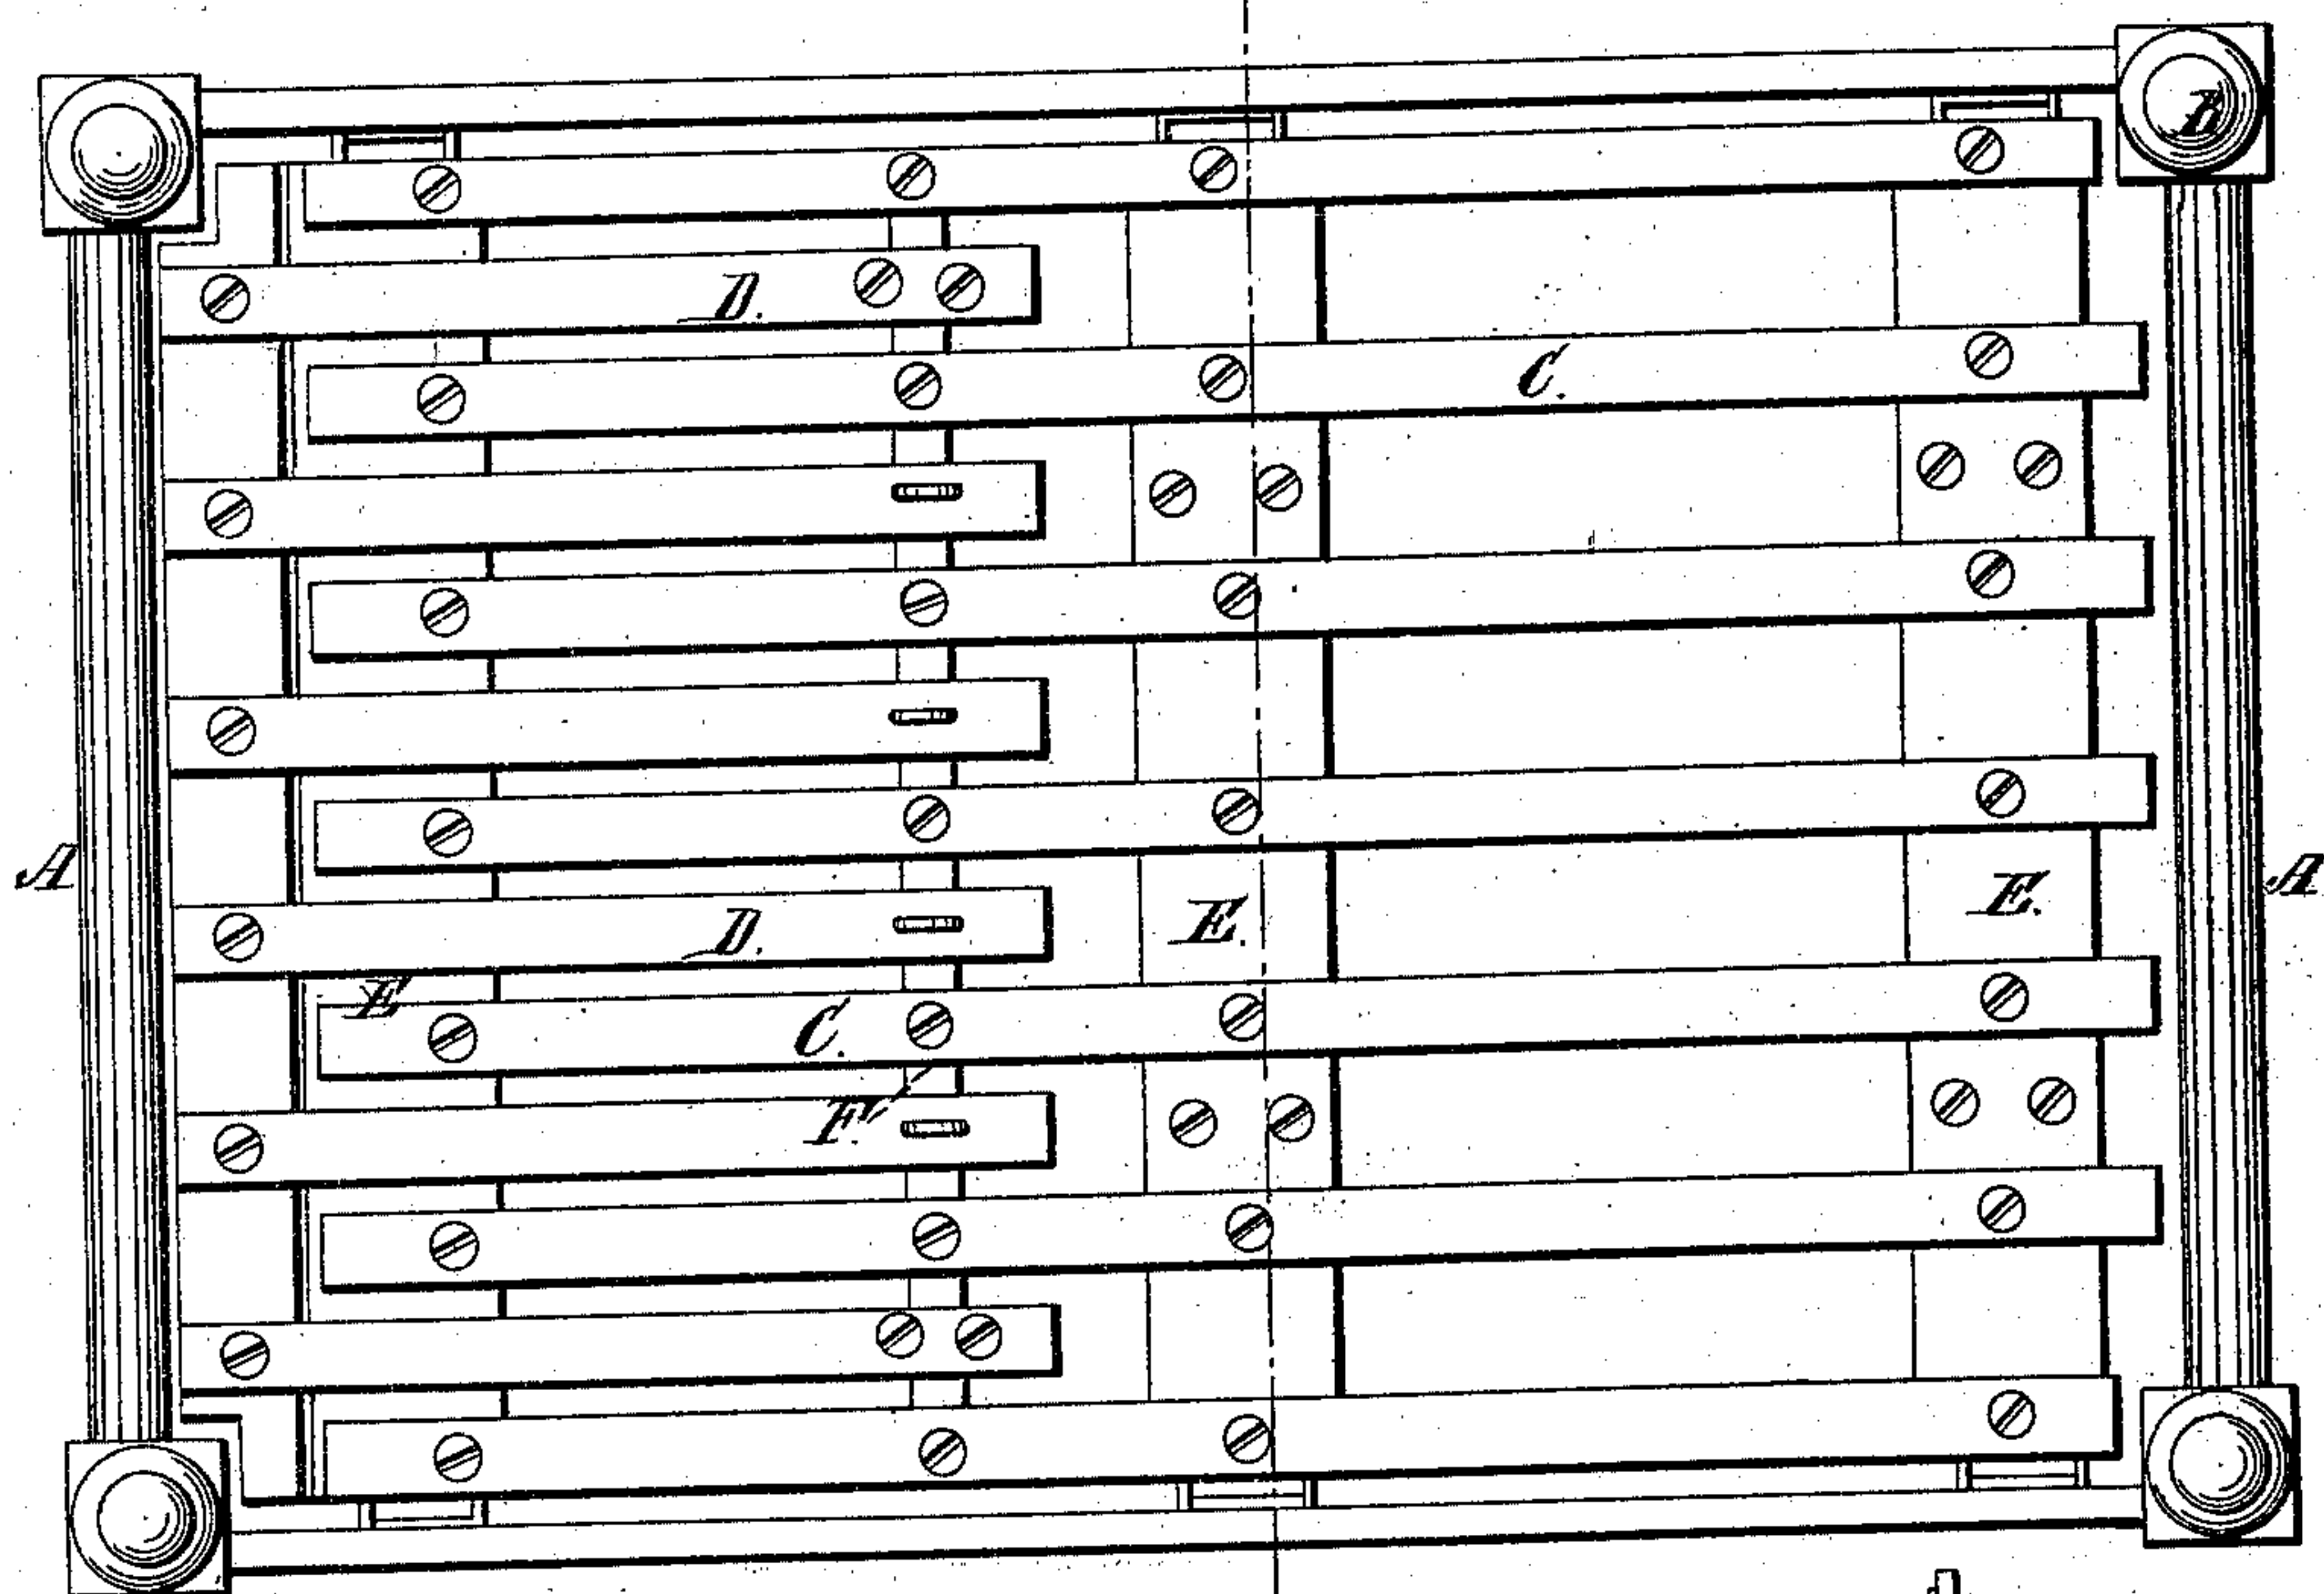 B
D.
C.
A
A
D.
E.
E.
E
C.
F.